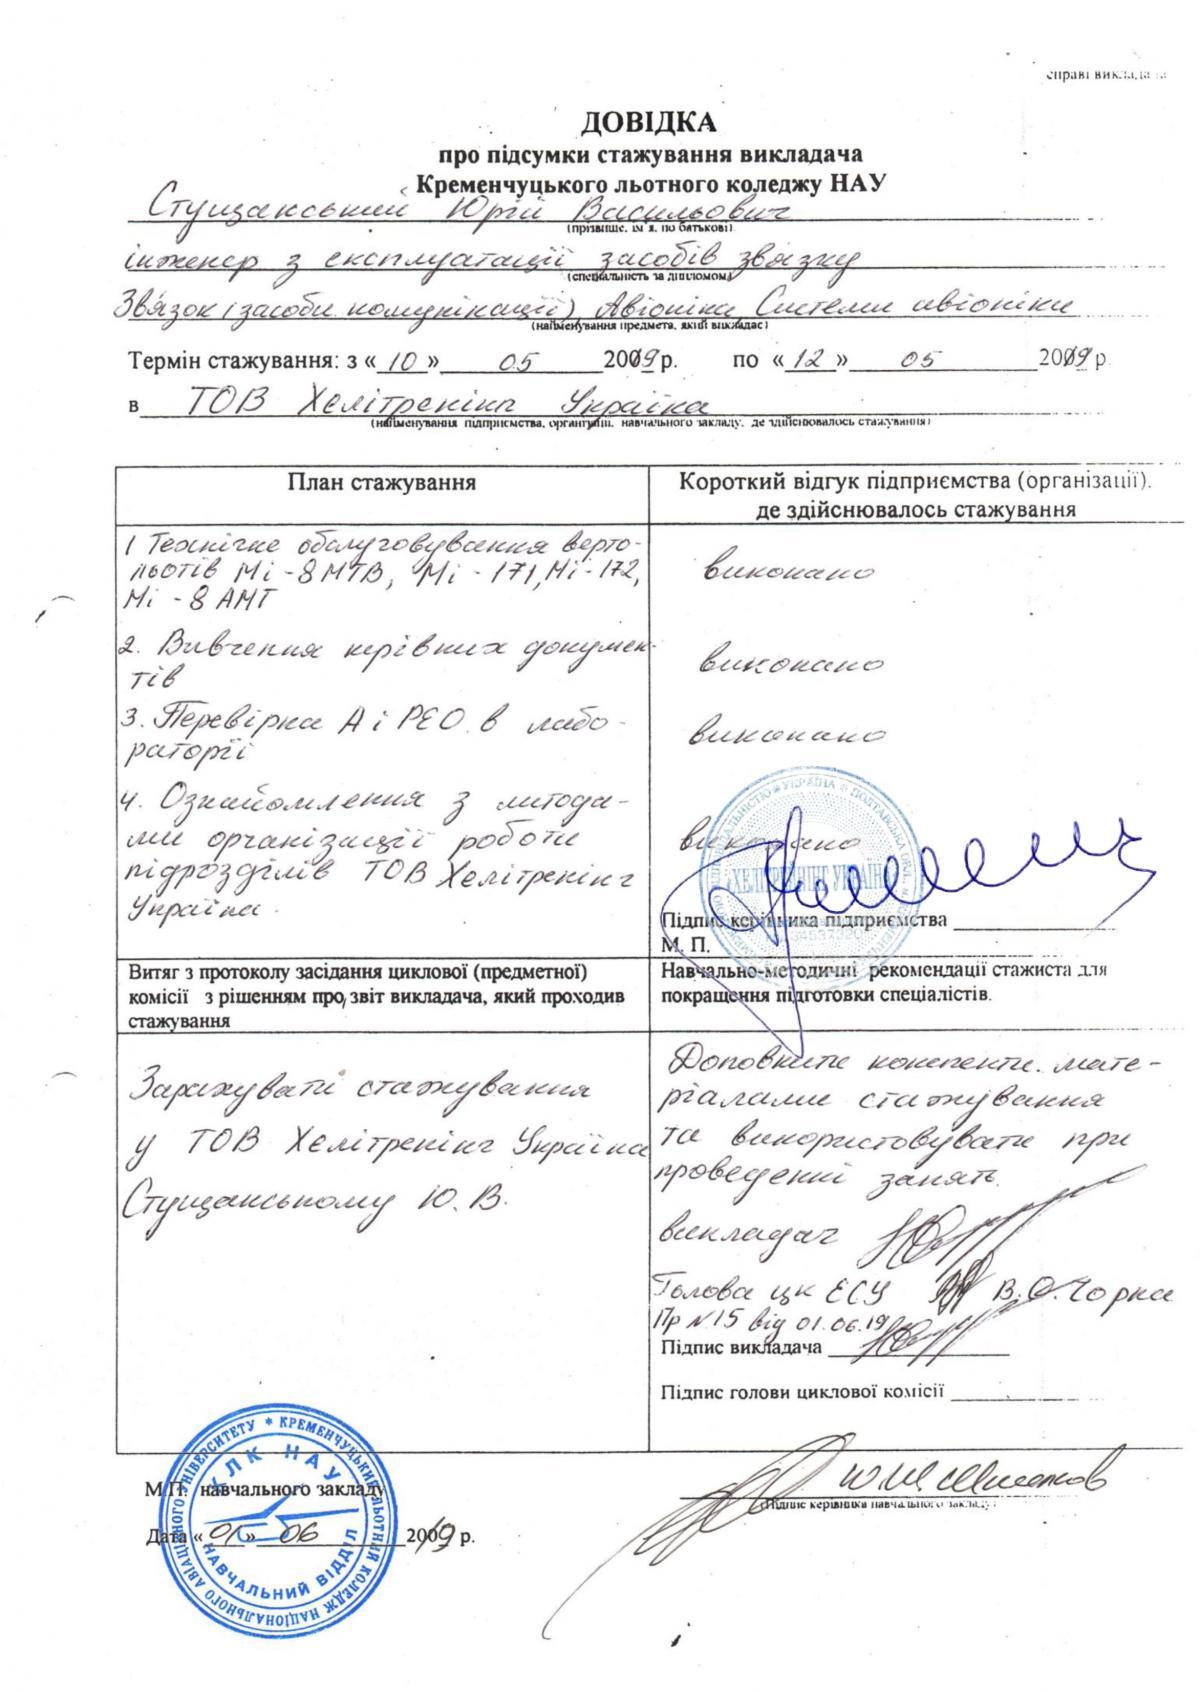 справі викладача
ДОВІДКА
про підсумки стажування викладача
Кременчуцького льотного коледжу НАУ
Стущанський Юрій Васильович
(прізвище, ім'я, по батькові)
інженер з експлуатації засобів зв'язку
(спеціальність за дипломом)
Зв'язок (засоби комунікації) Авіоніка Системи авіоніки
(найменування предмета, який викладає)
Термін стажування: з « 10 » 05 2019 р. по « 12 » 05 2019 р.
в ТОВ Хелітренінг Україна
(найменування підприємства, організації, навчального закладу, де здійснювалось стажування)
План стажування
Короткий відгук підприємства (організації).
де здійснювалось стажування
1 Технічне обслуговування верто-
льотів Мі-8МТВ, Мі-171, Мі-172,
Мі-8 АМТ
виконано
2. Вивчення керівних докумен-
тів
виконано
3. Перевірка А і РЕО в лабо-
раторії
виконано
4. Ознайомлення з метода-
ми організації роботи
підрозділів ТОВ Хелітренінг
Україна.
виконано
УКРАЇНА * ПОЛТАВСЬКА ОБЛ.
«ХЕЛІТРЕНІНГ УКРАЇНА»
Підпис керівника підприємства
М. П.
Витяг з протоколу засідання циклової (предметної)
комісії з рішенням про звіт викладача, який проходив
стажування
Навчально-методичні рекомендації стажиста для
покращення підготовки спеціалістів.
Зарахувати стажування
у ТОВ Хелітренінг Україна
Стущанському Ю.В.
Доповнити конспекти мате-
ріалами стажування
та використовувати при
проведенні занять.
викладач
Голова цк ЕСУ В.О.Чорна
Пр №15 від 01.06.19
Підпис викладача
Підпис голови циклової комісії
* КРЕМЕНЧУЦЬКИЙ ЛЬОТНИЙ КОЛЕДЖ НАЦІОНАЛЬНОГО АВІАЦІЙНОГО УНІВЕРСИТЕТУ
КЛК НАУ
НАВЧАЛЬНИЙ ВІДДІЛ
М.П. навчального закладу
(Підпис керівника навчального закладу)
Дата « 01 » 06 2019 р.